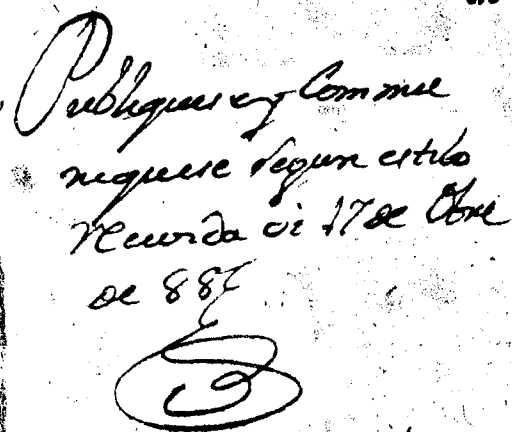 Publiquese y Commu
niquese segun estilo
recivida oi 17 de Obre
de 88